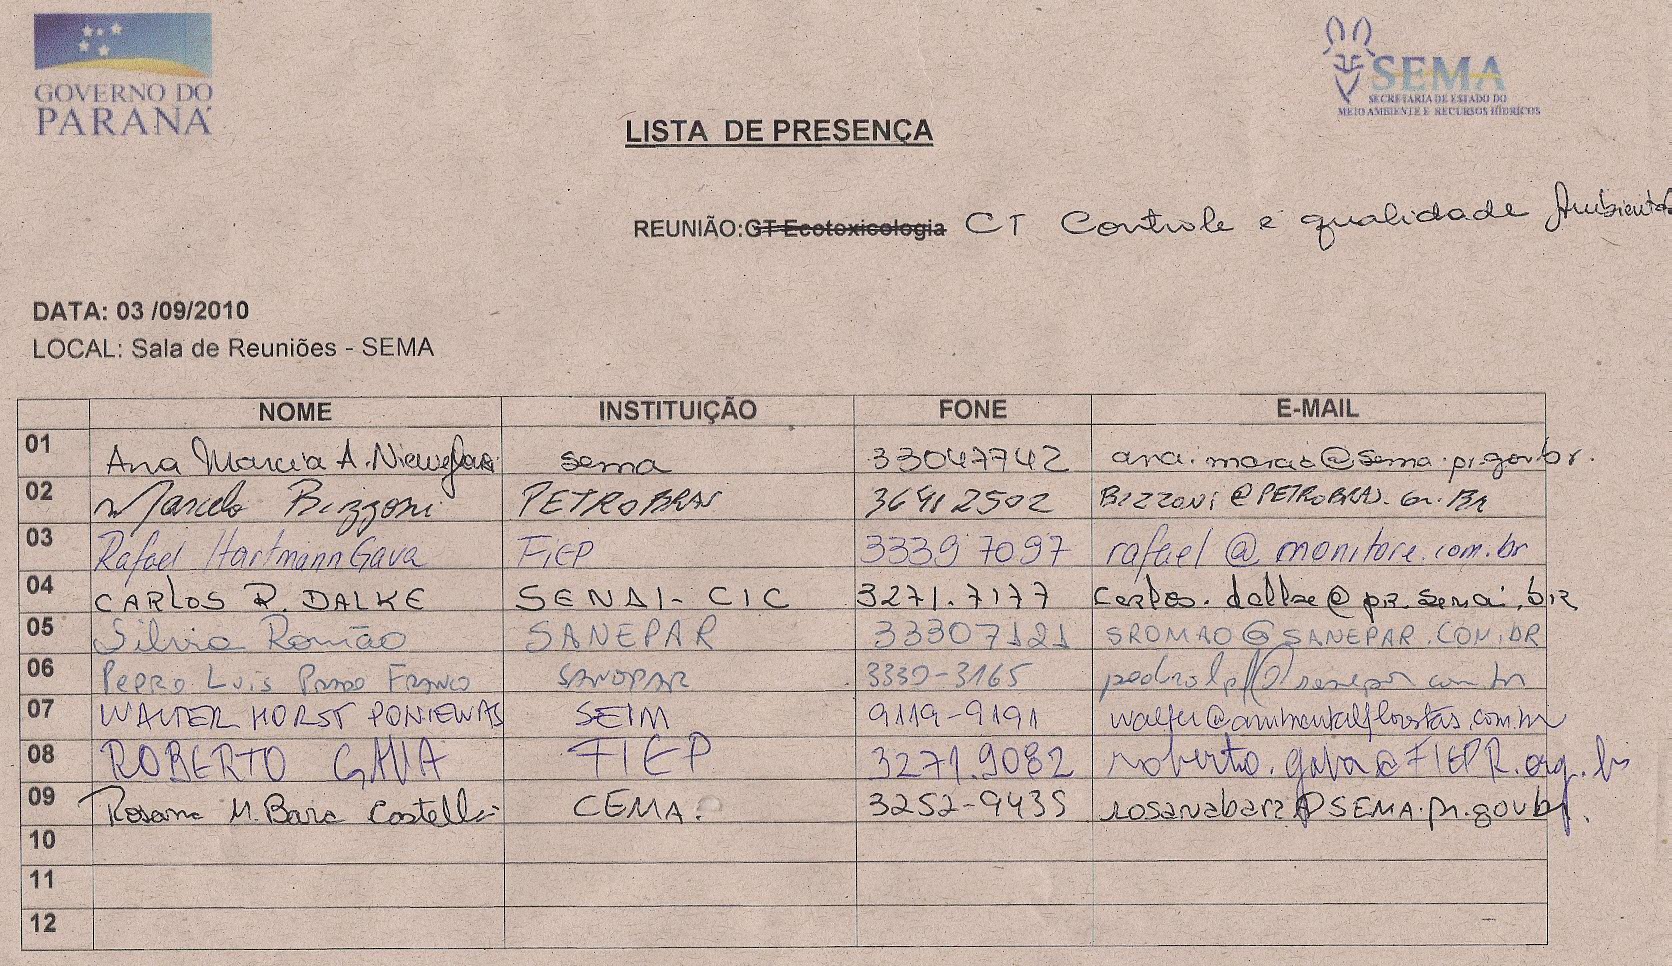 GOVERNO DO
PARANÁ
SEMA
SECRETARIA DE ESTADO DO
MEIO AMBIENTE E RECURSOS HÍDRICOS
LISTA DE PRESENÇA
REUNIÃO: GT Ecotoxicologia CT Controle e qualidade Ambiental
DATA: 03 /09/2010
LOCAL: Sala de Reuniões - SEMA
NOME INSTITUIÇÃO FONE E-MAIL
01 Ana Marcia A. sema 33047742 ana.marcia@sema.pr.gov.br.
02 Marcelo Bizzoni PETROBRAS 36412502 BIZZONI@PETROBRAS.COM.BR
03 Rafael Hartmann Gava FIEP 33397097 rafael@monitore.com.br
04 CARLOS R. DALKE SENAI-CIC 3271.7177 carlos.dalke@pr.senai.br
05 Silvia Romão SANEPAR 33307121 SROMAO@SANEPAR.COM.BR
06 PEDRO LUIS PRADO FRANCO SANEPAR 3330-3165
07 WALTER HORST PONIEWAS SEIM 9119-9191
08 ROBERTO GAVA FIEP 3271.9082 roberto.gava@FIEPR.org.br
09 Rosana M. Bara Castella CEMA. 3252-9435 rosanabara@SEMA.pr.gov.br.
10
11
12